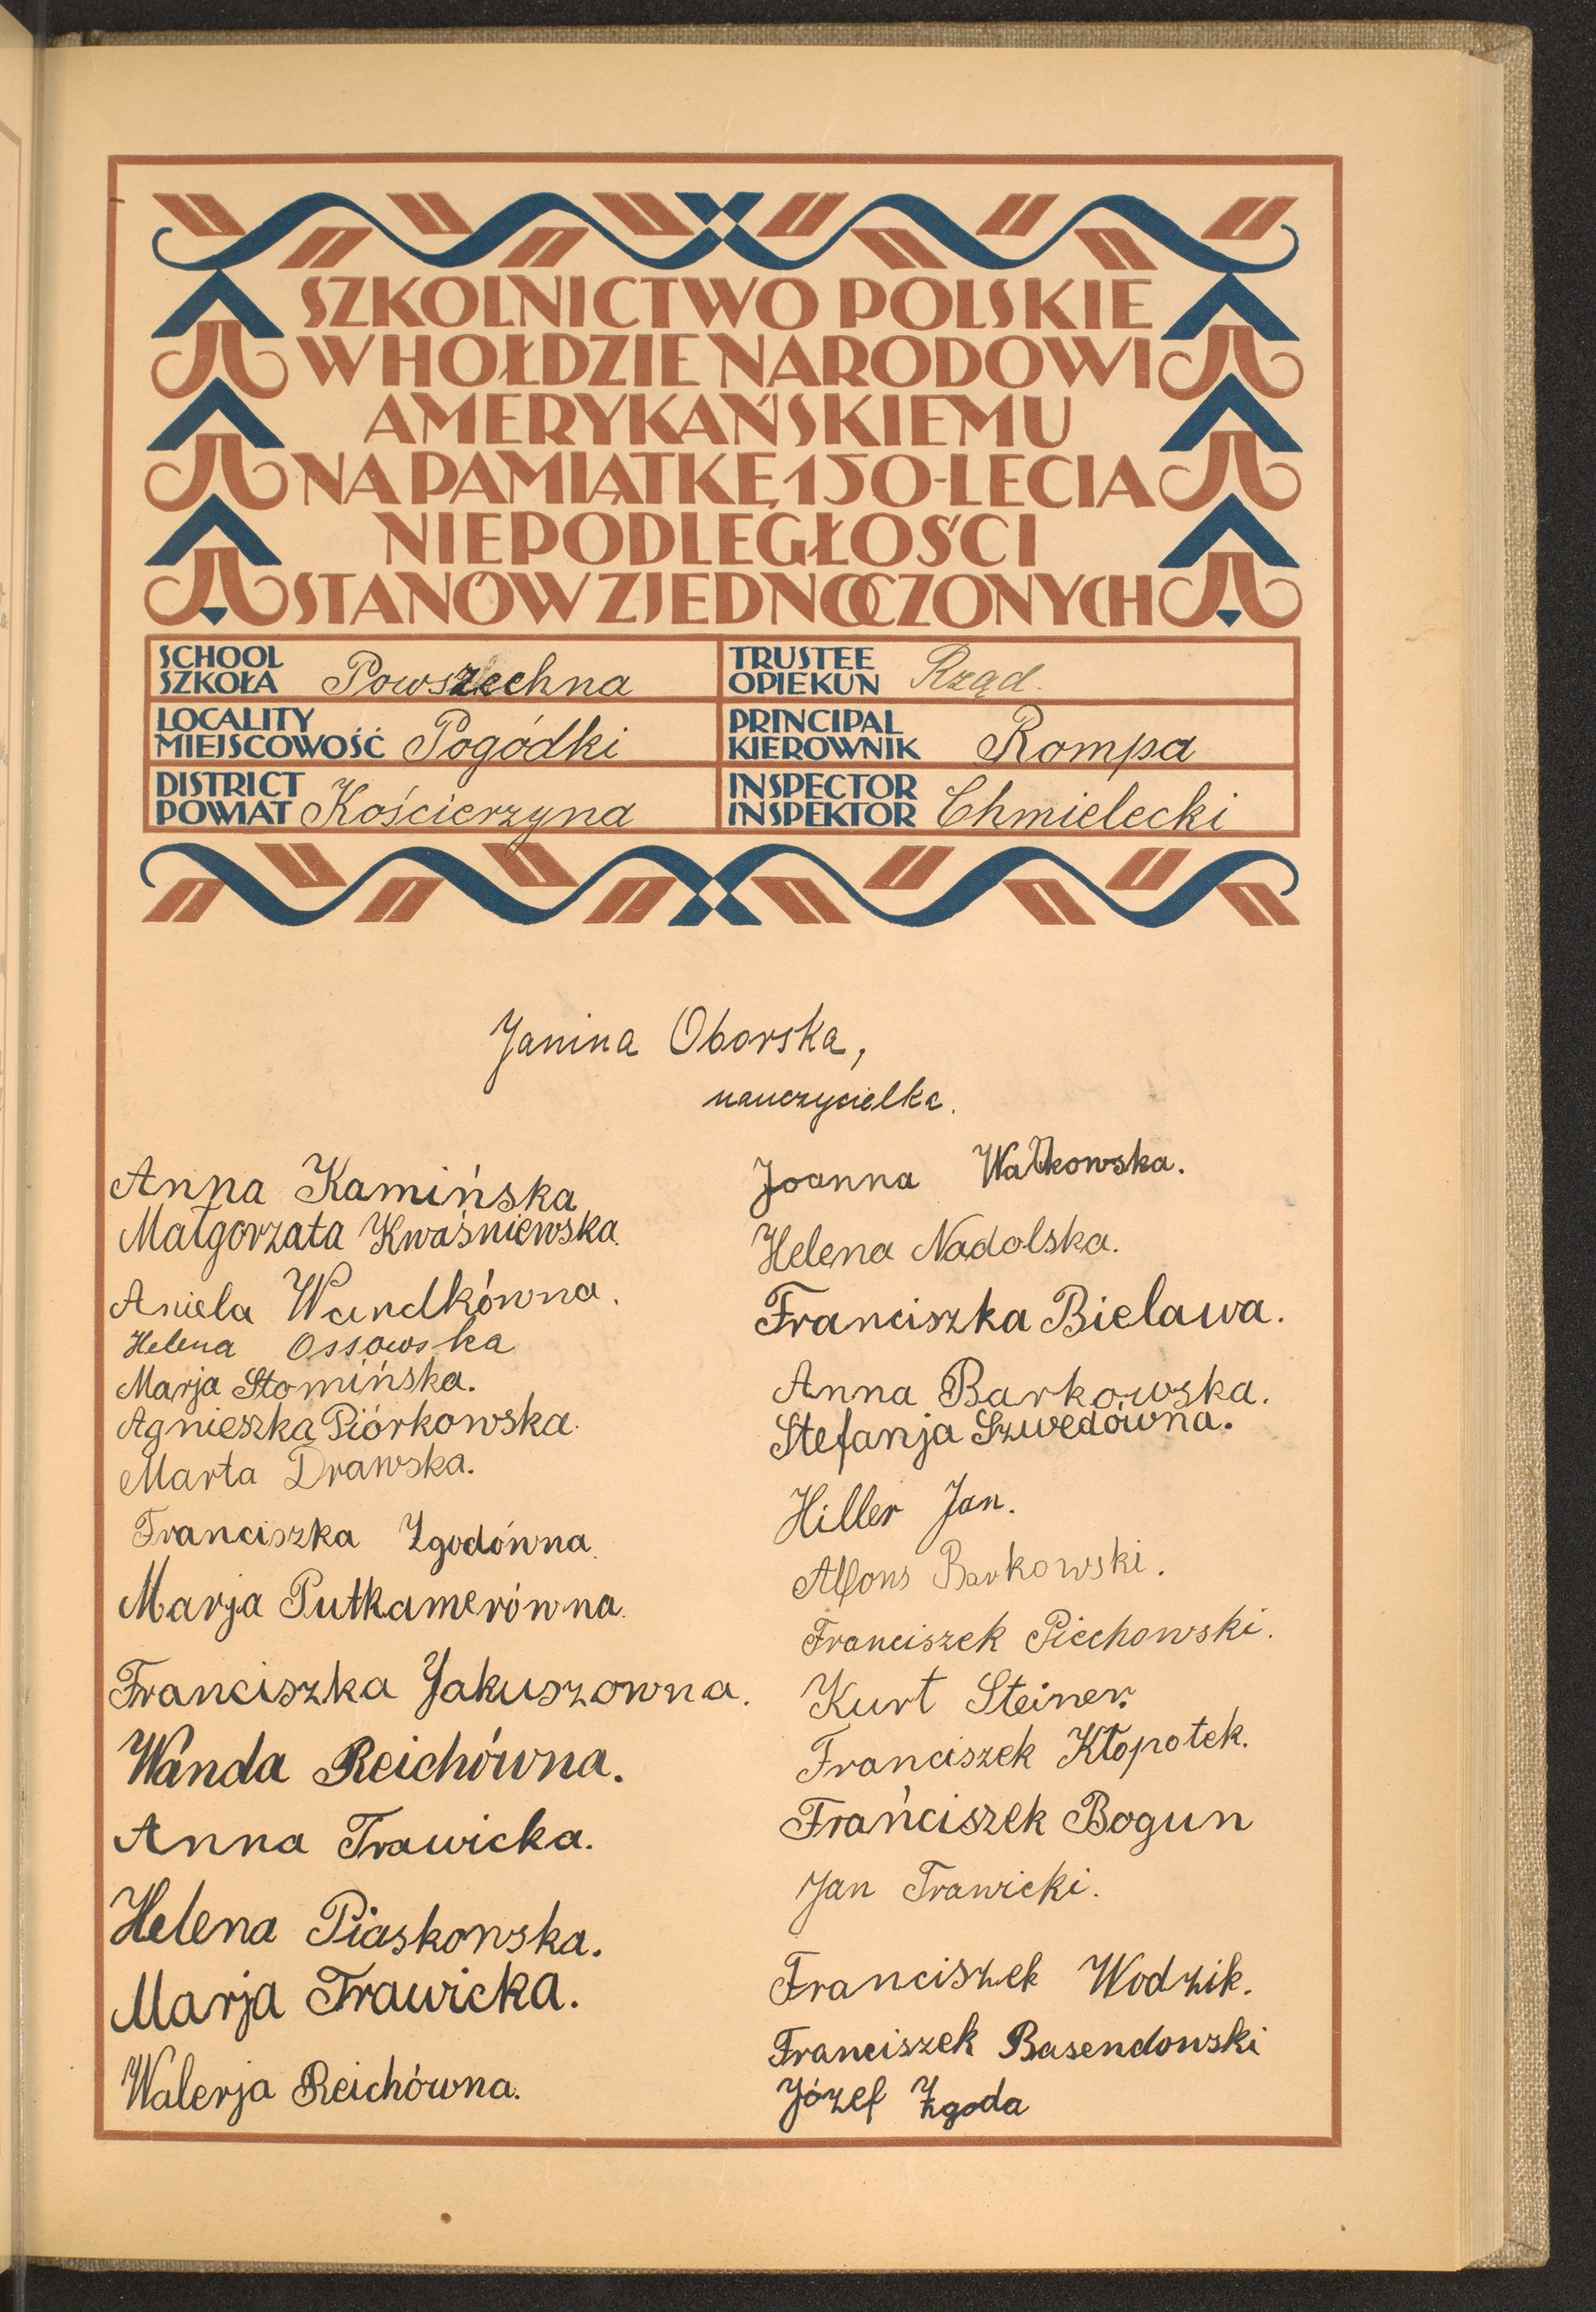 SZKOLNICTWO POLSKIE
W HOŁDZIE NARODOWI
AMERYKAŃSKIEMU
NA PAMIĄTKĘ 150-LECIA
NIEPODLEGŁOŚCI
STANÓW ZJEDNOCZONYCH
SCHOOL
SZKOŁA Powszechna
TRUSTEE
OPIEKUN Rząd.
LOCALITY
MIEJSCOWOŚĆ Pogódki
PRINCIPAL
KIEROWNIK Rompa
DISTRICT
POWIAT Kościerzyna
INSPECTOR
INSPEKTOR Chmielecki
Janina Oborska,
nauczycielka.
Anna Kamińska
Małgorzata Kwaśniewska.
Aniela Wandkówna.
Helena Ossowska
Marja Słomińska.
Agnieszka Piórkowska.
Marta Drawska.
Franciszka Zgodówna.
Marja Putkamerówna.
Franciszka Jakuszowna.
Wanda Reichówna.
Anna Trawicka.
Helena Piaskowska.
Marja Trawicka.
Walerja Reichówna.
Joanna Wałkowska.
Helena Nadolska.
Franciszka Bielawa.
Anna Barkowska.
Stefanja Szwedówna.
Hiller Jan.
Alfons Barkowski.
Franciszek Piechowski.
Kurt Steiner.
Franciszek Kłopotek.
Franciszek Bogun
Jan Trawicki.
Franciszek Wodzik.
Franciszek Basendowski
Józef Zgoda